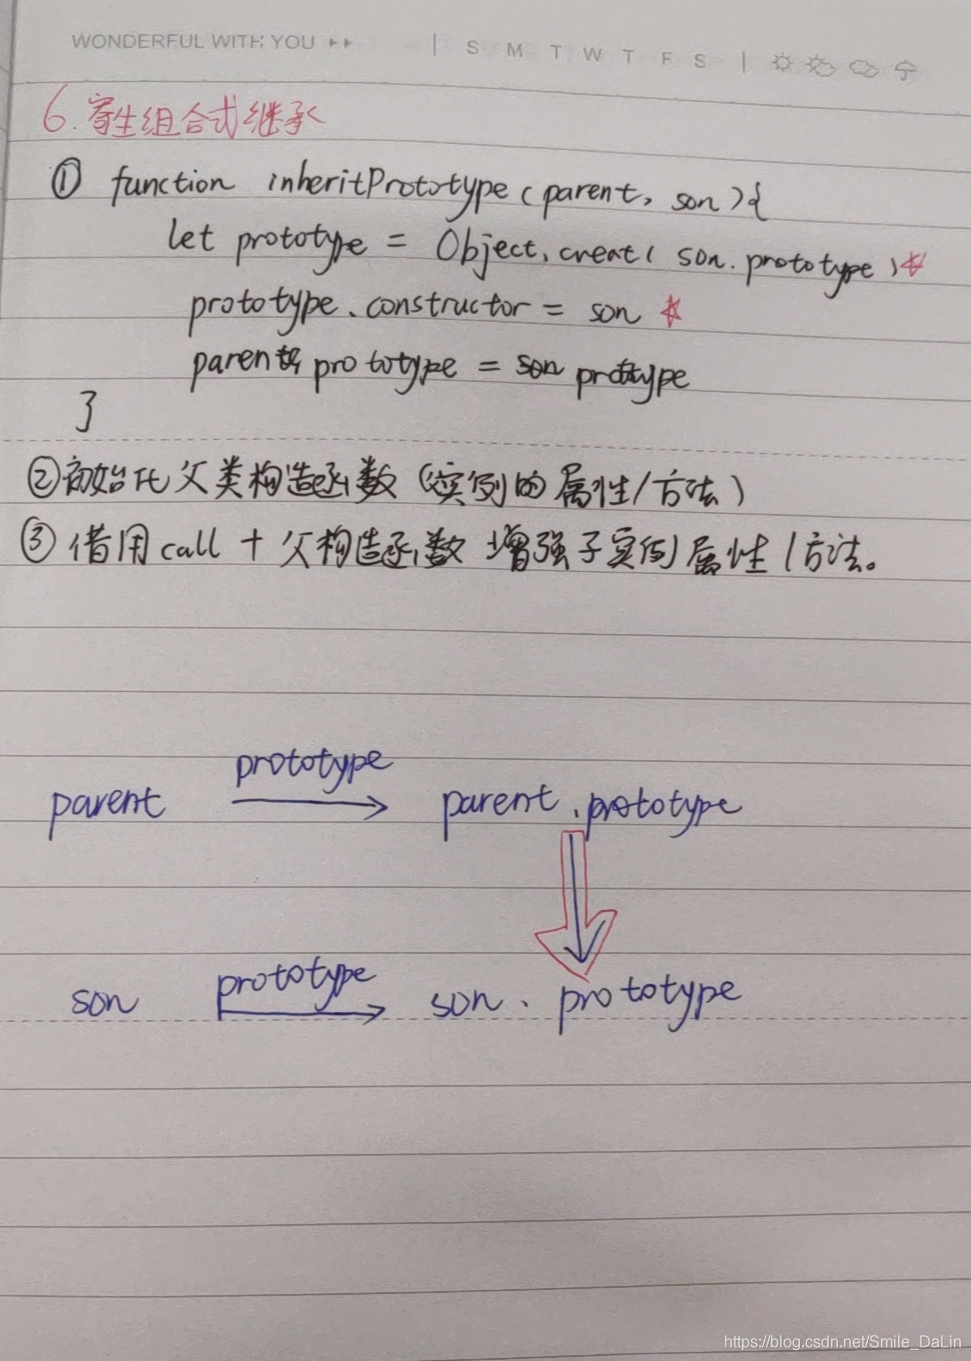 WONDERFUL WITH YOU
S M T W T F S
6. 寄生组合式继承
① function inheritPrototype(parent, son){
let prototype = Object.creat( son.prototype )
prototype.constructor = son
parent prototype = son prototype
}
②初始化父类构造函数(实例的属性/方法)
③借用call + 父构造函数 增强子实例属性/方法。
prototype
parent parent.prototype
prototype
son son.prototype
https://blog.csdn.net/Smile_DaLin